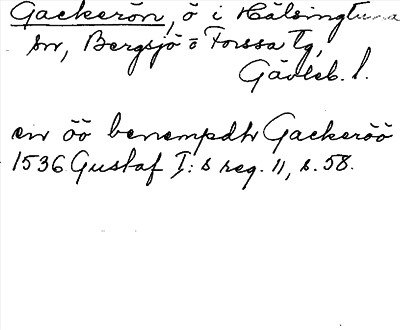 Gackerön, ö i Hälsingtuna
sn, Bergsjö o Forssa tg,
Gävleb. l.
en öö benempdh Gackeröö
1536 Gustaf I:s reg. 11, s. 58.